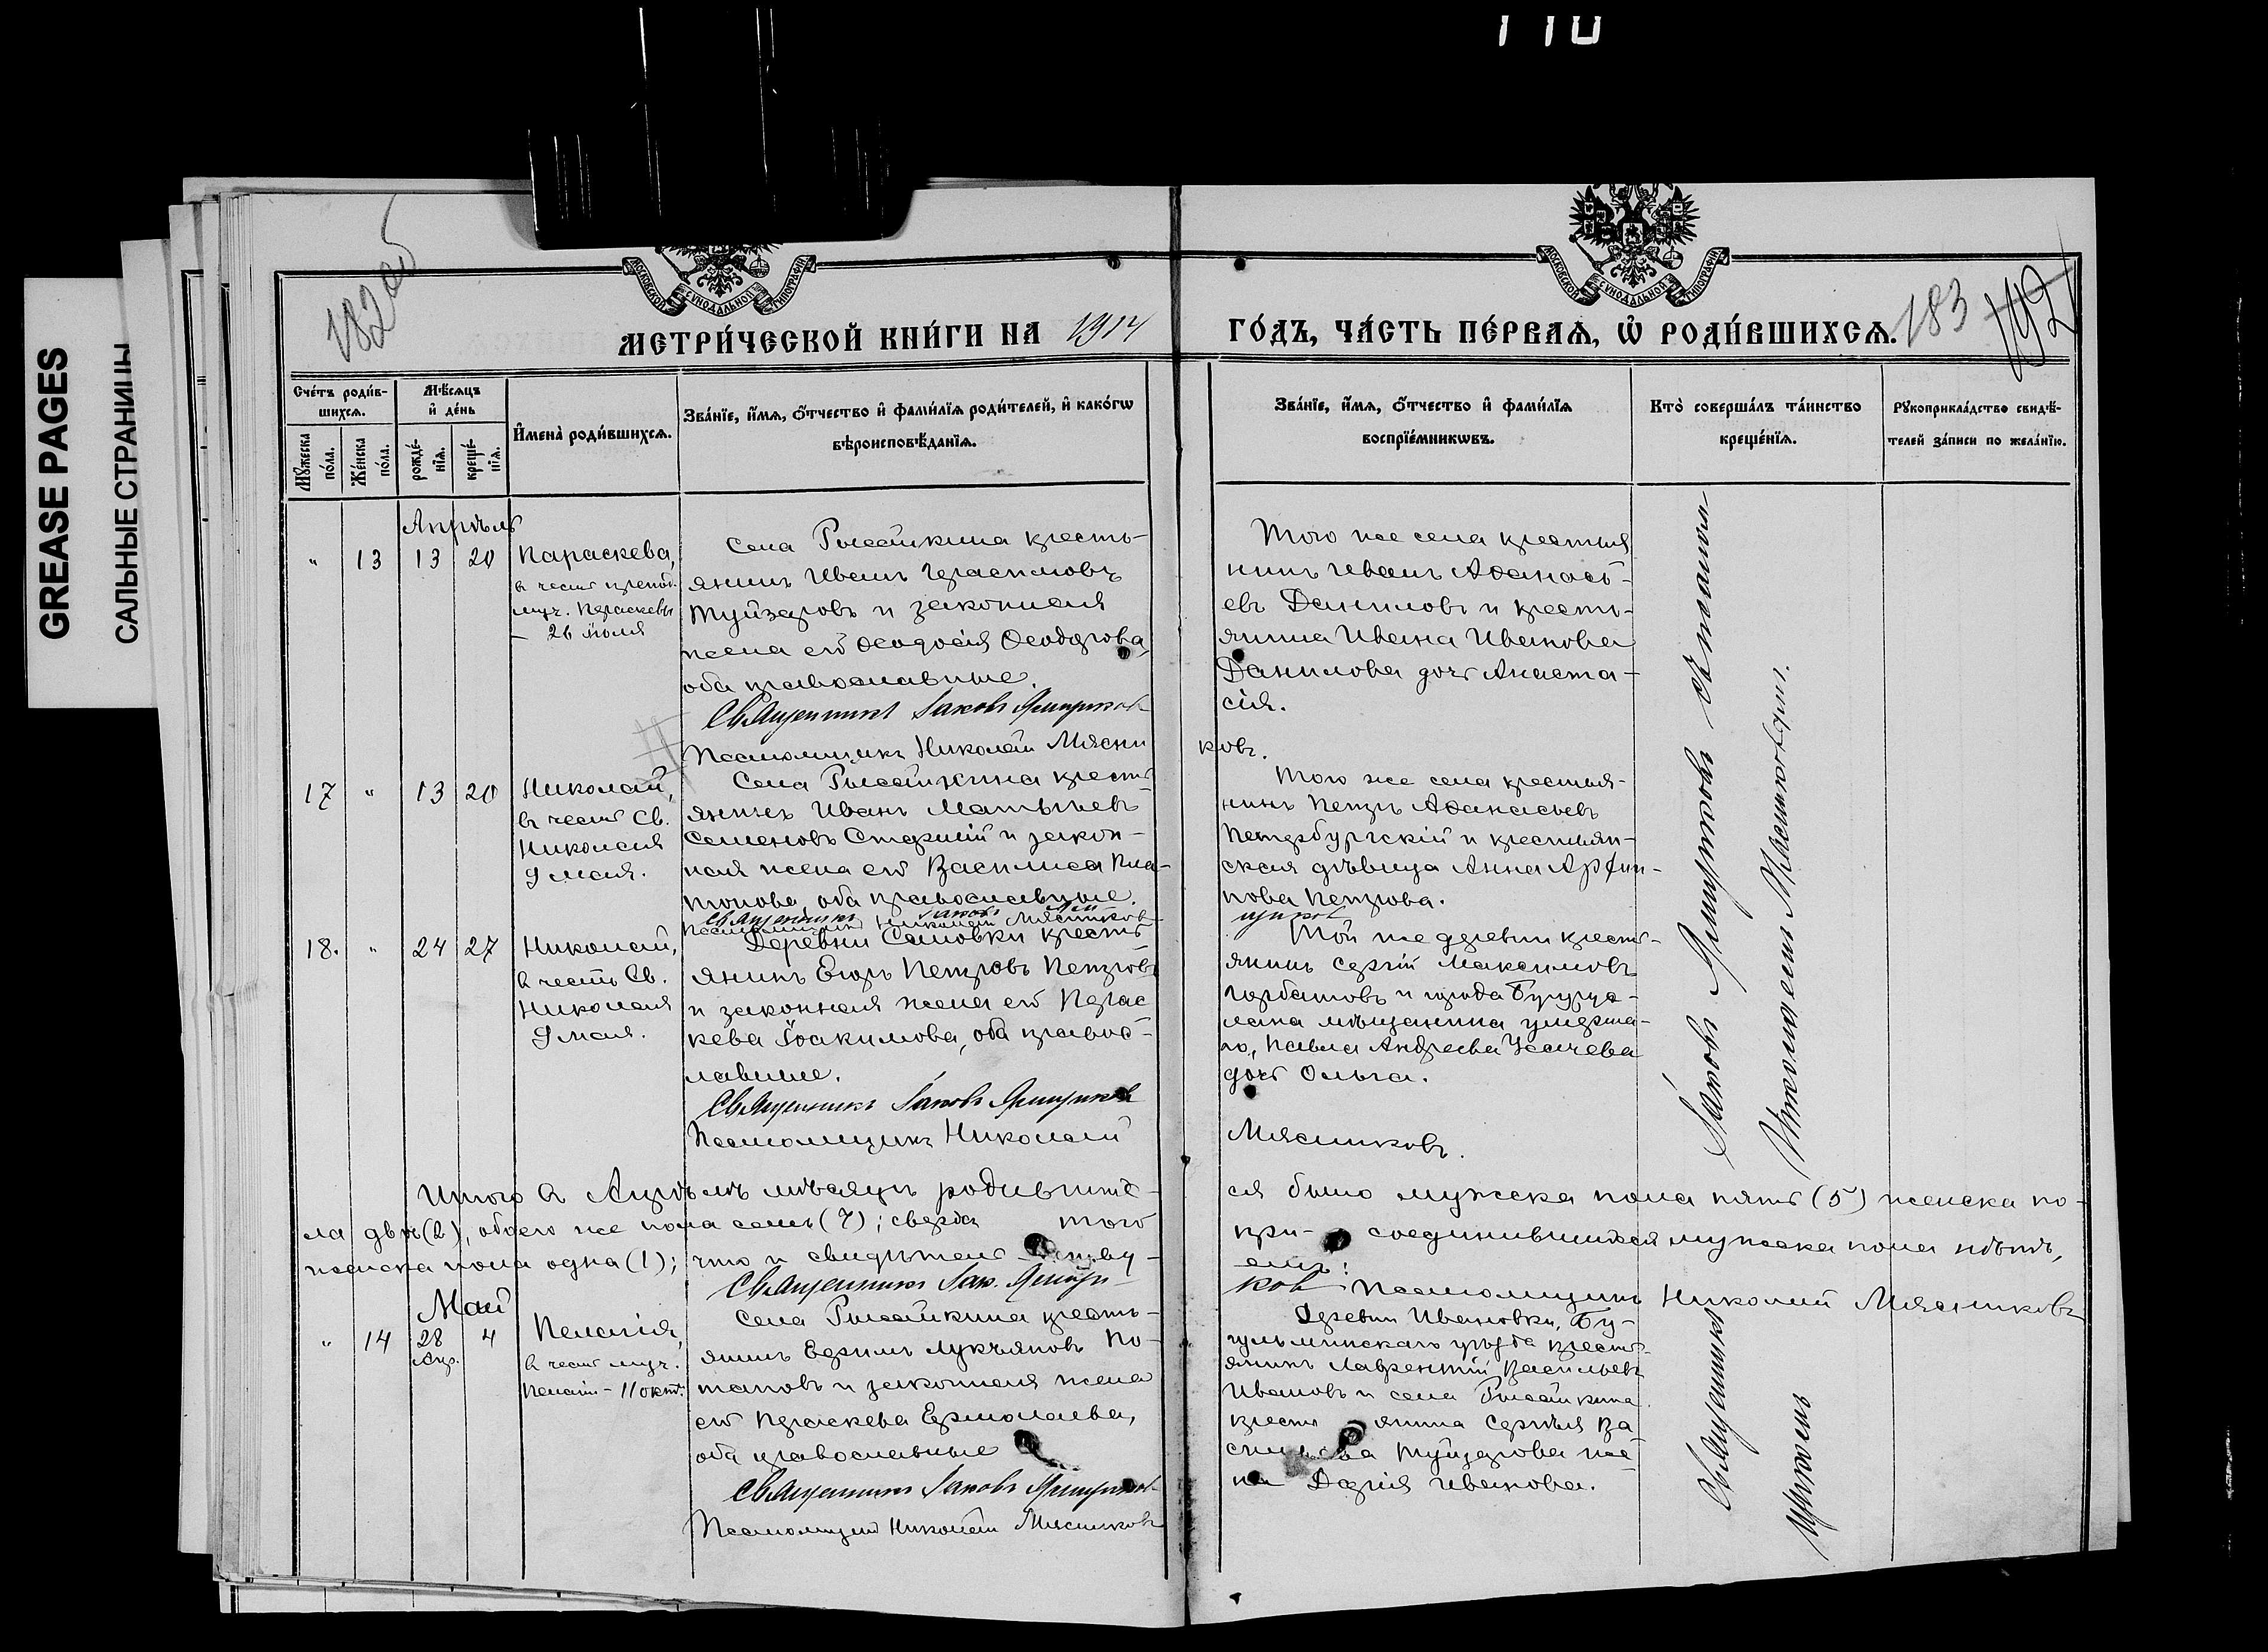 110
GREASE PAGES
САЛЬНЫЕ СТРАНИЦЫ
182 об
183
192
МОСКОВСКОЙ СУНОДАЛЬНОЙ ТИПОГРАФИИ
МОСКОВСКОЙ СУНОДАЛЬНОЙ ТИПОГРАФИИ
МЕТРИ́ЧЕСКОЙ КНИ́ГИ НА 1914 ГО́ДЪ, ЧА́СТЬ ПЕ́РВАѦ, Ѡ҆ РОДИ́ВШИХСѦ.
Сче́тъ роди́в-
шихсѧ.
Мꙋжеска по́ла.
Же́нска по́ла.
Мѣ́сѧцъ
и҆ де́нь
рожде́-
нїѧ.
креще́-
нїѧ.
И҆мена̀ роди́вшихсѧ.
Зва́нїе, и҆́мѧ, ѻ҆́тчество и҆ фами́лїѧ роди́телей, и҆ како́гѡ
вѣроисповѣ́данїѧ.
Зва́нїе, и҆́мѧ, ѻ҆́тчество и҆ фами́лїѧ
воспрїе́мникѡвъ.
Кто̀ соверша́лъ та́инство
креще́нїѧ.
Рꙋкоприкла́дство свидѣ́-
телей за́писи по жела́нїю.
Апрѣль
" 13 13 20
Параскева,
въ честь препод.
муч. Параскевы
– 26 іюля
Села Рысайкина кресть-
янинъ Иванъ Герасимовъ
Туйзаровъ и законная
жена его Ѳеодосія Ѳеодорова,
оба православные.
Священникъ Іаковъ Ямщиков
Псаломщикъ Николай Мясни
ковъ.
Того же села крестья
нинъ Иванъ Аѳанась-
евъ Даниловъ и кресть-
янина Ивана Иванова
Данилова дочь Анаста-
сія.
17 " 13 20
Николай,
въ честь Св.
Николая
9 мая.
Села Рысайкина кресть
янинъ Иванъ Матвѣевъ
Семеновъ Старшій и закон-
ная жена его Василиса Пла-
тонова, оба православные.
Священникъ Іаковъ Ям
щиков
Псаломщикъ Николай Мясниковъ
Того же села крестья-
нинъ Петръ Аѳанасьевъ
Петербургскій и крестьян-
ская дѣвица Анна Архип-
пова Петрова.
18. " 24 27
Николай,
въ честь Св.
Николая
9 мая.
Деревни Семовки кресть
янинъ Егоръ Петровъ Петровъ
и законная жена его Парас
кева Іоакимова, оба правос-
лавные.
Священникъ Іаковъ Ямщиков
Псаломщикъ Николай
Мясниковъ.
Той же деревни кресть-
янинъ Сергій Максимовъ
Горбатовъ и города Бугурус-
лана мѣщанина умерша-
го, Павла Андреева Усачева
дочь Ольга.
Итого въ Апрѣлѣ мѣсяцѣ родивши-
ся было мужска пола пять (5) женска по-
ла двѣ (2), обоего же пола семь (7); сверхъ того
при- соединившихся мужска пола нѣтъ,
женска пола одна (1); что и свидѣтельствуемъ:
Священникъ Іак. Ямщи
ков Псаломщикъ Николай Мясниковъ
Май
" 14 28 4
Апр.
Пелагія,
въ честь муч.
Пелагіи – 11 окт.
Села Рысайкина кресть-
янинъ Ефремъ Лукьяновъ По-
таповъ и законная жена
его Параскева Ермолаева,
оба православные
Священникъ Іаковъ Ямщиков
Псаломщикъ Николай Мясниковъ
Деревни Ивановки, Бу-
гульминскаго уѣзда кресть-
янинъ Лаврентій Васильевъ
Ивановъ и села Рысайкина
кресть янина Сергѣя Ва
сильева Туйзарова же-
на Дарія Иванова.
Священникъ Іаковъ Ямщиковъ
Псаломщикъ Николай Мясниковъ.